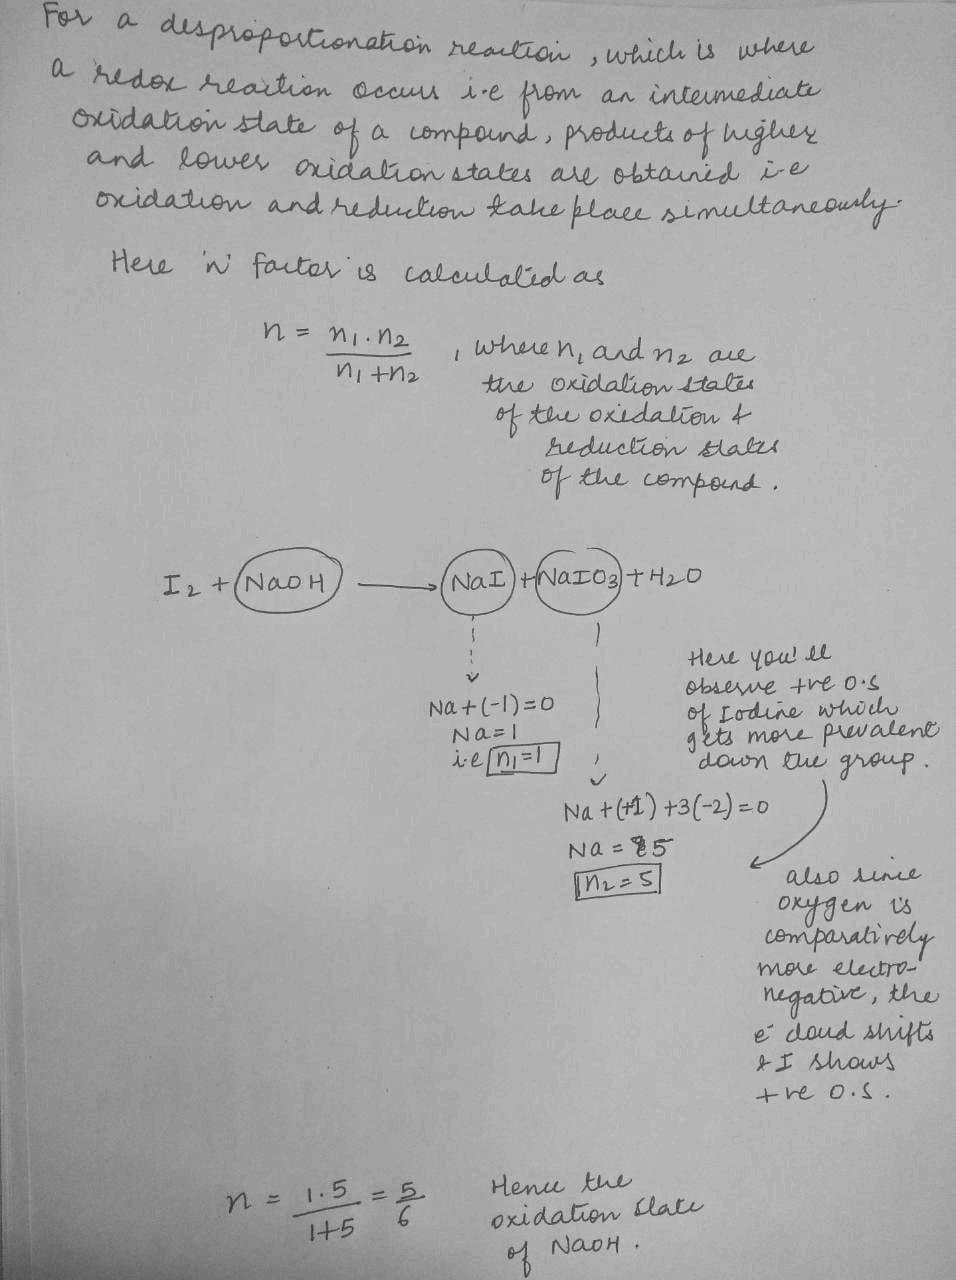 For a desproportionation reaction, which is where
a redox reaction occurs i.e from an intermediate
oxidation state of a compound, products of higher
and lower oxidation states are obtained i.e
oxidation and reduction take place simultaneously.
Here 'n' factor is calculated as
n = n₁.n₂ / n₁+n₂ , where n₁ and n₂ are
the oxidation states
of the oxidation &
reduction states
of the compound.
I₂ + NaOH → NaI + NaIO₃ + H₂O
Na+(-1)=0
Na=1
i.e n₁=1
Here you'll
observe +ve o.s
of Iodine which
gets more prevalent
down the group.
Na+(+1)+3(-2)=0
Na = 5
n₂=5
also since
oxygen is
comparatively
more electro-
negative, the
e⁻ cloud shifts
& I shows
+ve o.s.
n = 1.5 / 1+5 = 5/6
Hence the
oxidation state
of NaOH.